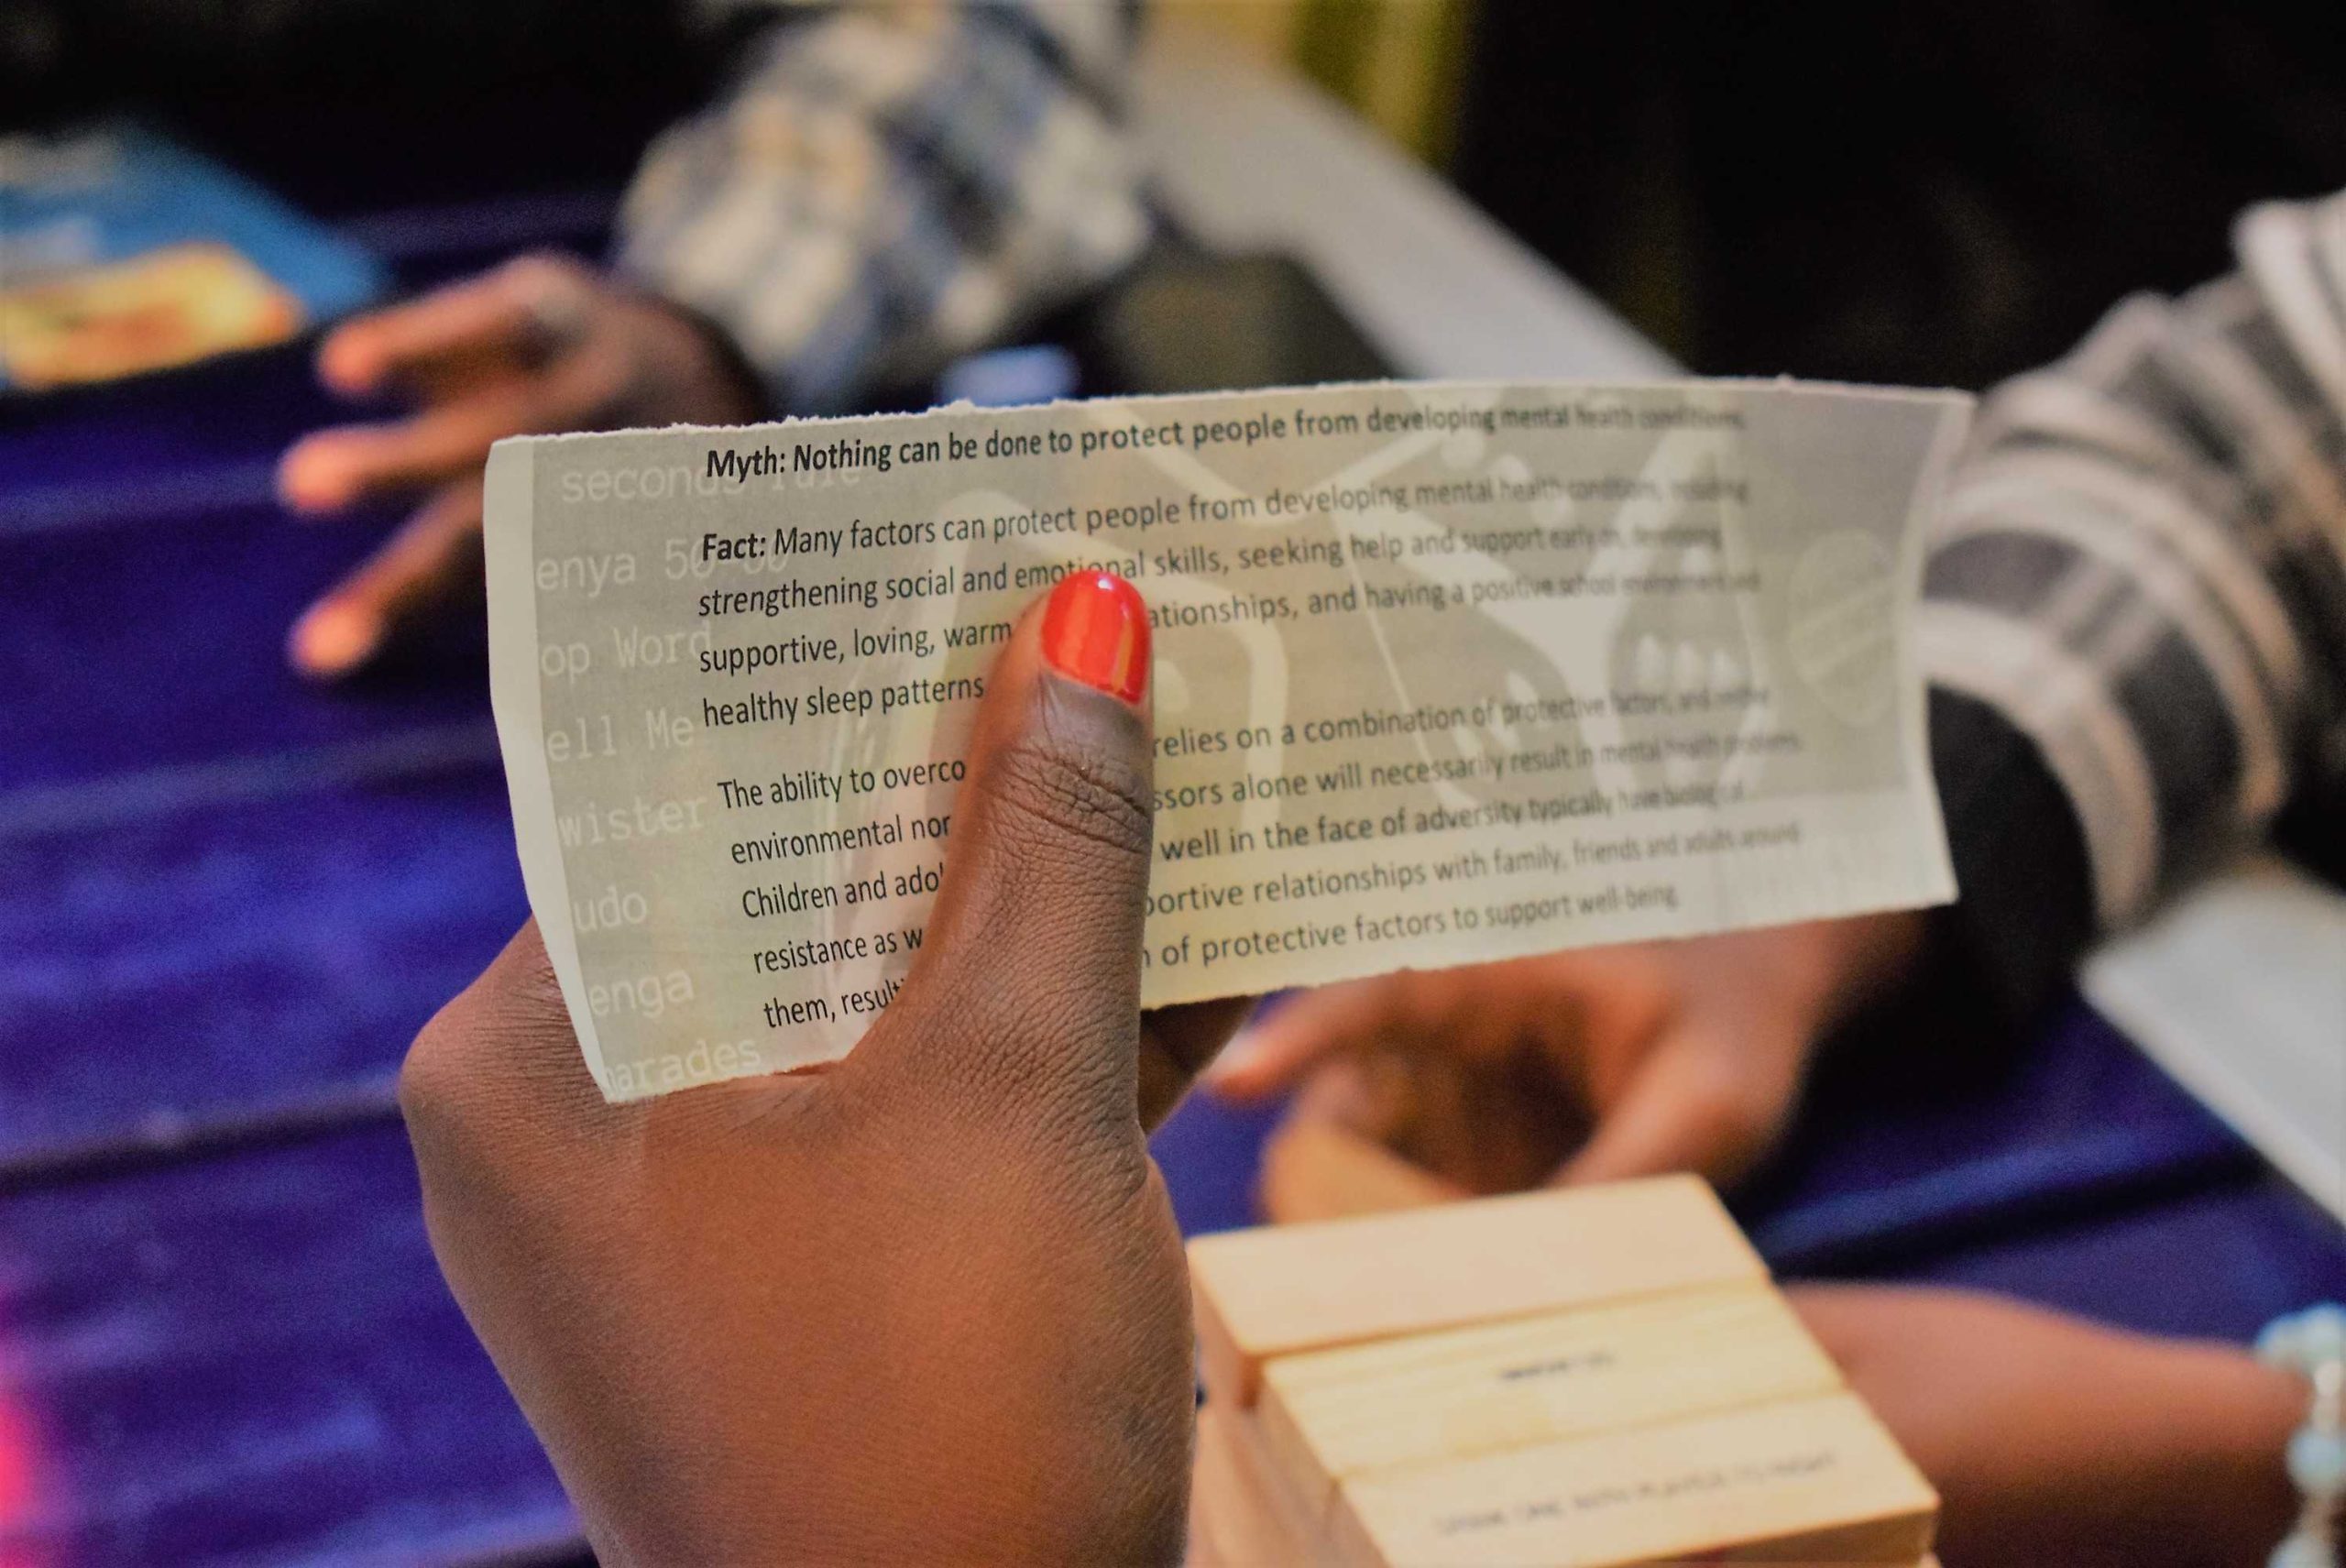 Myth: Nothing can be done to protect people from developing mental health conditions.
Fact: Many factors can protect people from developing mental health conditions, including
strengthening social and emotional skills, seeking help and support early on, developing
supportive, loving, warm ationships, and having a positive school environment and
healthy sleep patterns
The ability to overco relies on a combination of protective factors, and neither
environmental nor ssors alone will necessarily result in mental health problems.
Children and adol well in the face of adversity typically have biological
resistance as w portive relationships with family, friends and adults around
them, result n of protective factors to support well-being.
seconds rule
enya 50-60
op Word
ell Me
wister
udo
enga
harades